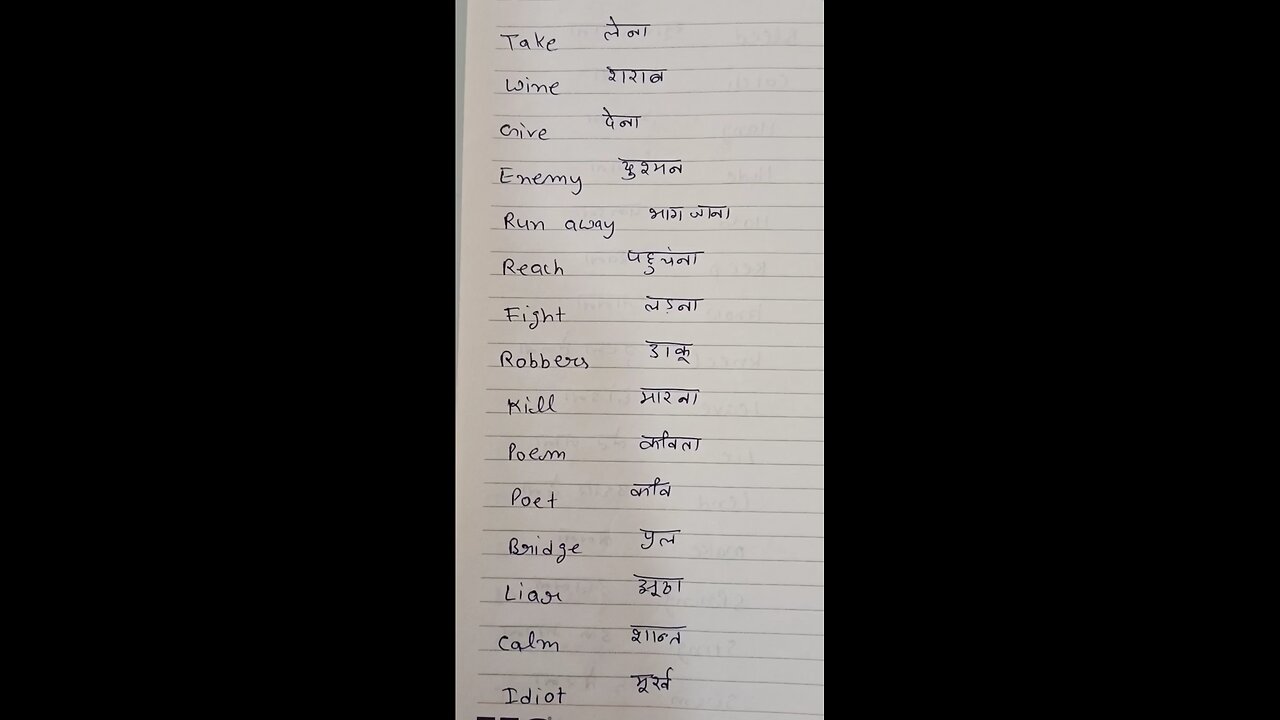 Take लेना
Wine शराब
Give देना
Enemy दुश्मन
Run away भाग जाना
Reach पहुचंना
Fight लड़ना
Robbers डाकू
Kill मारना
Poem कविता
Poet कवि
Bridge पुल
Liar झूठा
Calm शान्त
Idiot मूर्ख